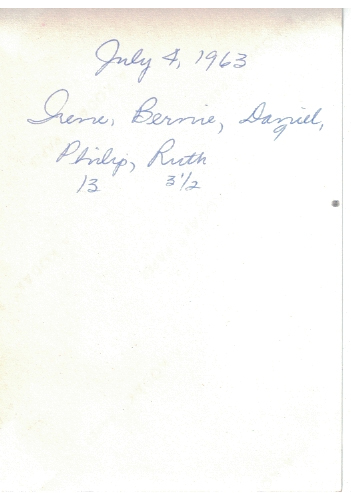 July 4, 1963
Irene, Bernie, Daniel,
9
Philip, Ruth
13 3 1/2